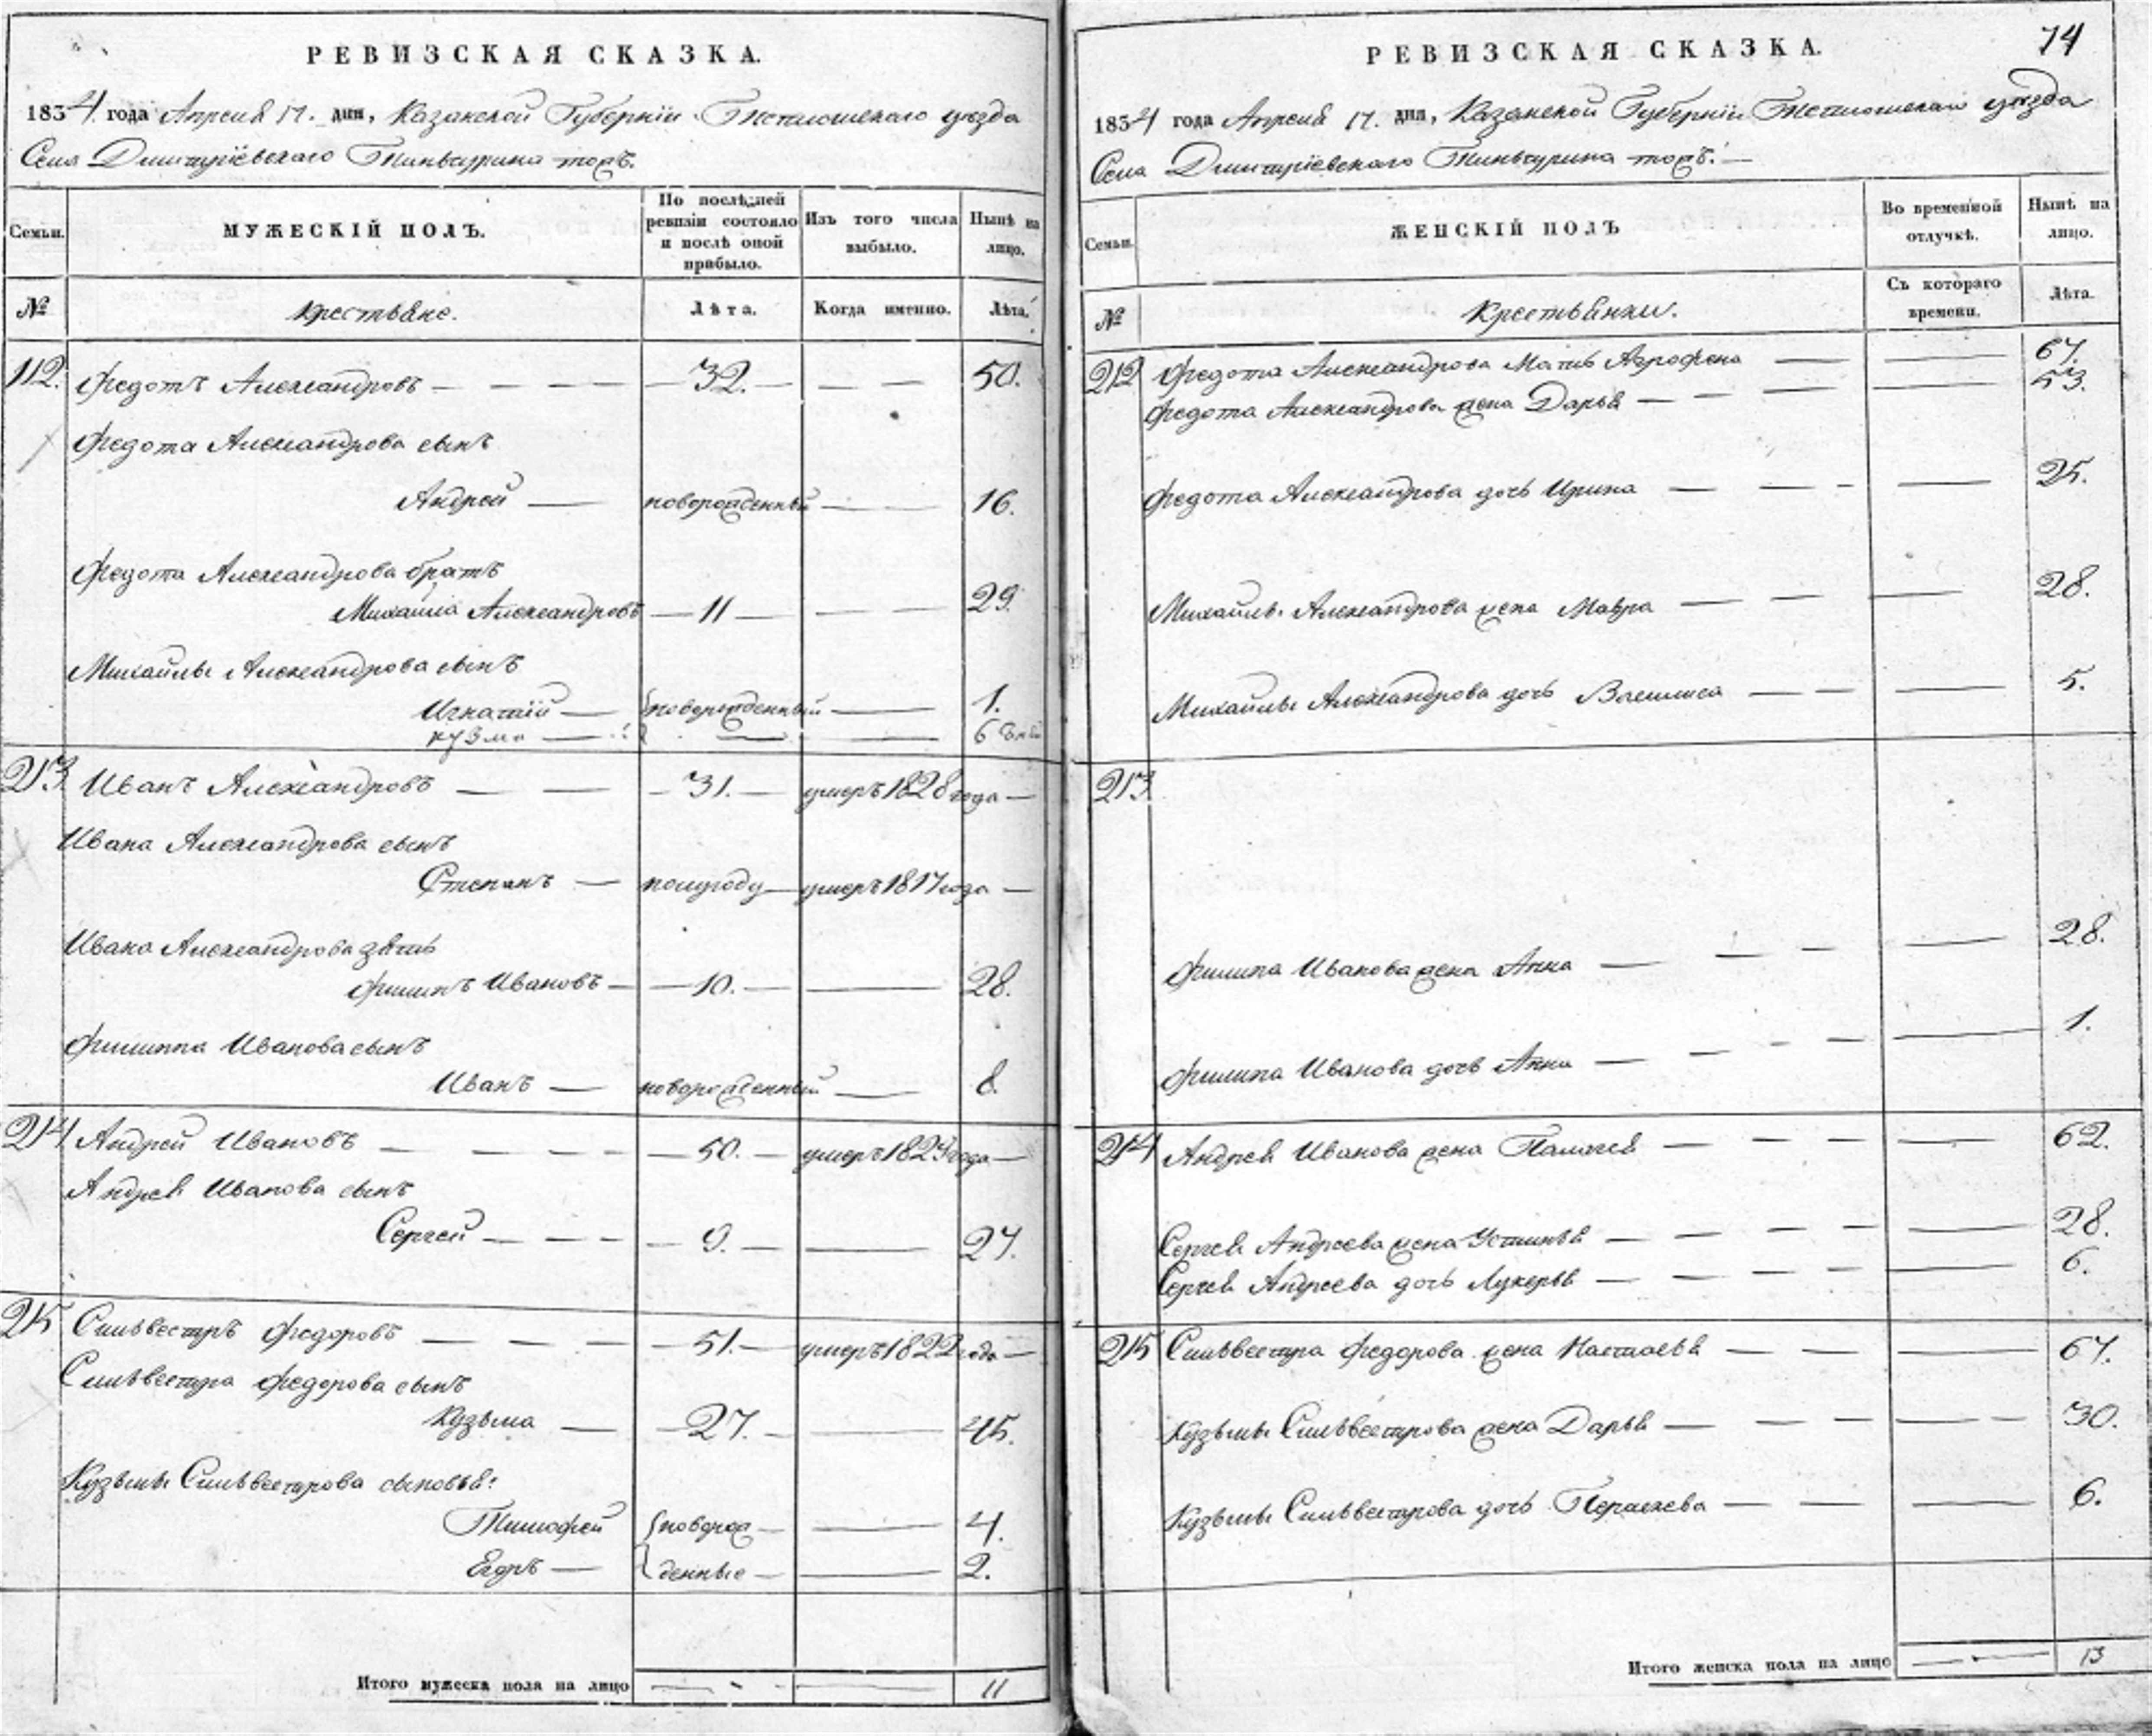 РЕВИЗСКАЯ СКАЗКА.
1834 года Апреля 17. дня, Казанской Губернїи Тетюшскаго уѣзда
Села Дмитрїевскаго Тинчурина тожъ.
Семьи.
МУЖЕСКІЙ ПОЛЪ.
По послѣдней ревизіи состояло и послѣ оной прибыло.
Изъ того числа выбыло.
Нынѣ на лицо.
№
Крестьяне.
Лѣта.
Когда именно.
Лѣта.
112. Федотъ Александровъ — 32. — 50.
Федота Александрова сынъ
Андрей — новорожденный — 16.
Федота Александрова братъ
Михайла Александровъ — 11 — 29.
Михайлы Александрова сынъ
Игнатій — новорожденный — 1.
Кузма — 6 дней
213 Иванъ Александровъ — 31. — умеръ 1828 года —
Ивана Александрова сынъ
Степанъ — полугоду — умеръ 1817 года —
Ивана Александрова зять
Филипъ Ивановъ — 10. — 28.
Филиппа Иванова сынъ
Иванъ — новорожденный — 8.
214 Андрей Ивановъ — 50. — умеръ года —
Андрея Иванова сынъ
Сергей — 9. — 27.
215 Сильвестръ Федоровъ — 51. — умеръ 1822 года —
Сильвестра Федорова сынъ
Кузьма — 27. — 45.
Кузьмы Сильвестрова сыновья:
Тимофей новорож- — 4.
Егоръ — денные — 2.
Итого мужеска пола на лицо — 11
74
РЕВИЗСКАЯ СКАЗКА.
1834 года Апреля 17. дня, Казанской Губернїи Тетюшскаго уѣзда
Села Дмитрїевскаго Тинчурина тожъ. —
Семьи.
ЖЕНСКІЙ ПОЛЪ
Во временной отлучкѣ.
Нынѣ на лицо.
№
Крестьянки.
Съ котораго времени.
Лѣта.
212 Федота Александрова Мать Агрофена — 67.
Федота Александрова жена Дарья — 53.
Федота Александрова дочь Ирина — 25.
Михайлы Александрова жена Мавра — 28.
Михайлы Александрова дочь Василиса — 5.
213
Филипа Иванова жена Анна — 28.
Филипа Иванова дочь Анна — 1.
214 Андрея Иванова жена Палагея — 62.
Сергея Андреева жена Устинья — 28.
Сергея Андреева дочь Лукерья — 6.
215 Сильвестра Федорова жена Настасья — 67.
Кузьмы Сильвестрова жена Дарья — 30.
Кузьмы Сильвестрова дочь Перасковья — 6.
Итого женска пола на лицо — 13